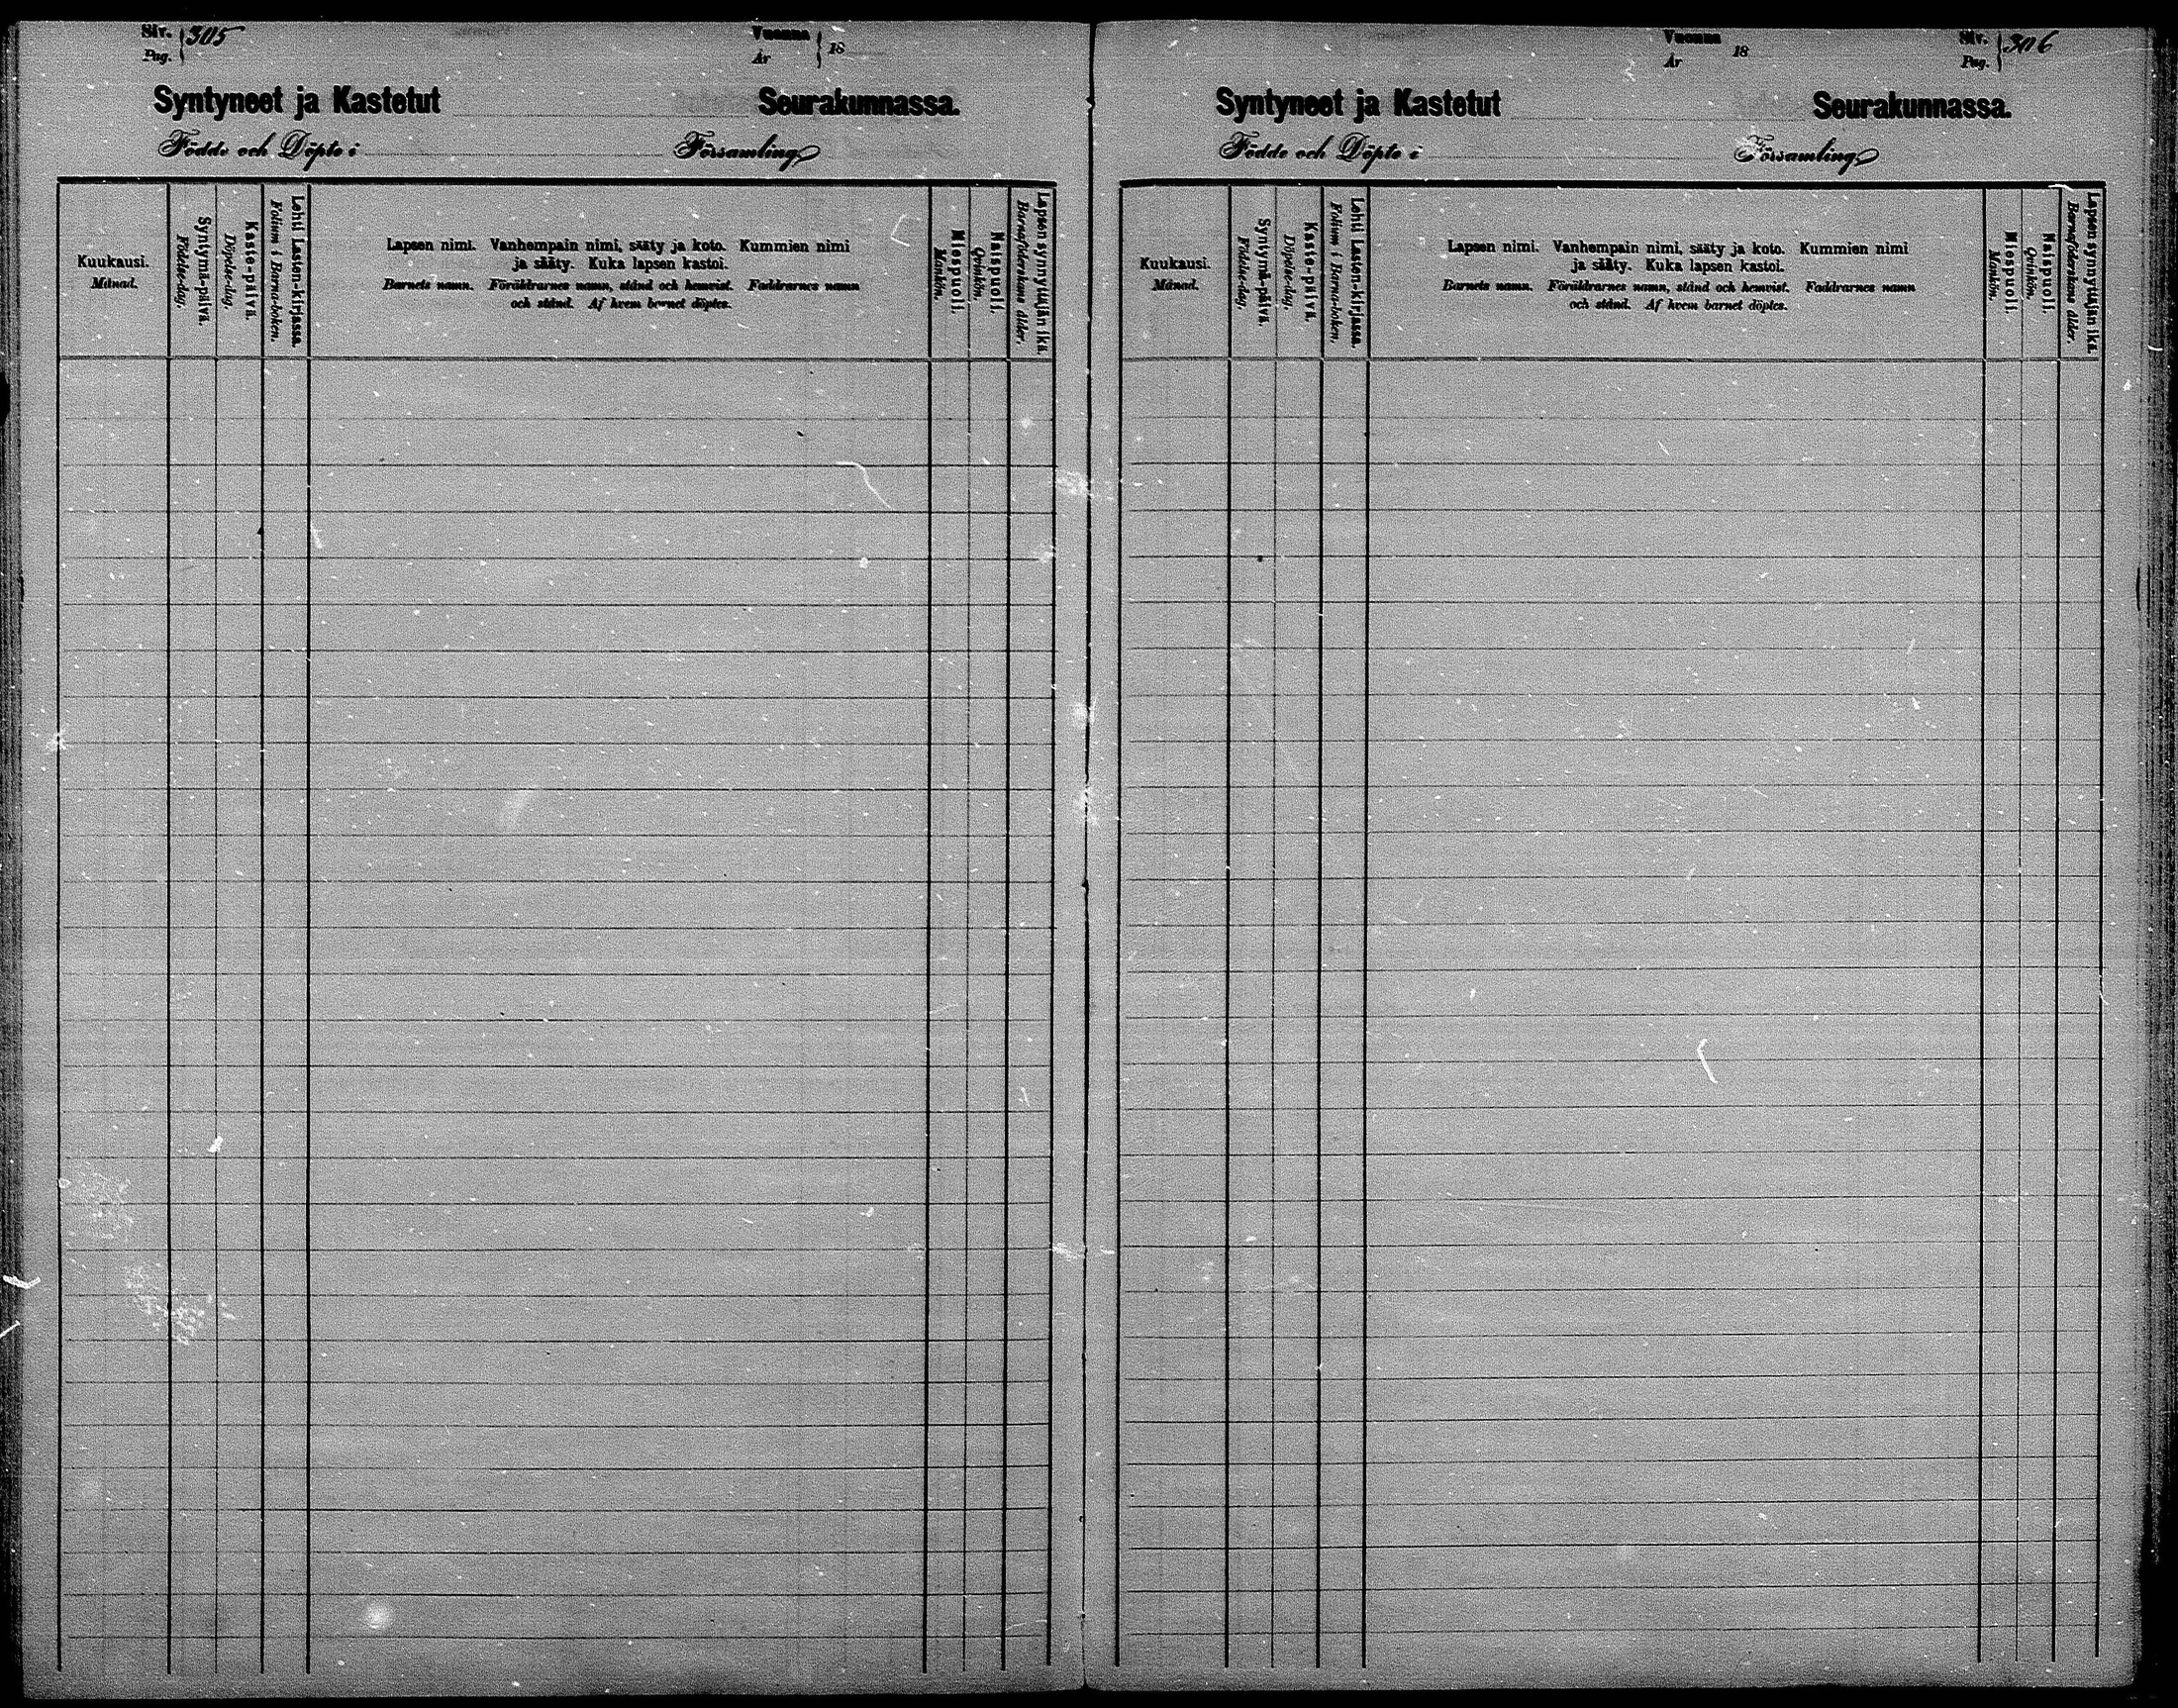 Siv. 305
Pag.
Vuonna 18
År
Syntyneet ja Kastetut Seurakunnassa.
Födde och Döpte i Församling
Kuukausi.
Månad.
Syntymä-päivä.
Födelse-dag.
Kaste-päivä.
Döpelse-dag.
Lehti Lasten-kirjassa.
Folium i Barna-boken.
Lapsen nimi. Vanhempain nimi, sääty ja koto. Kummien nimi
ja sääty. Kuka lapsen kastoi.
Barnets namn. Föräldrarnes namn, stånd och hemvist. Faddrarnes namn
och stånd. Af hvem barnet döptes.
Miespuoli.
Mankön.
Naispuoli.
Qvinkön.
Lapsen synnyttäjän ikä.
Barnaföderskans ålder.
Vuonna 18
År
Siv. 306
Pag.
Syntyneet ja Kastetut Seurakunnassa.
Födde och Döpte i Församling
Kuukausi.
Månad.
Syntymä-päivä.
Födelse-dag.
Kaste-päivä.
Döpelse-dag.
Lehti Lasten-kirjassa.
Folium i Barna-boken.
Lapsen nimi. Vanhempain nimi, sääty ja koto. Kummien nimi
ja sääty. Kuka lapsen kastoi.
Barnets namn. Föräldrarnes namn, stånd och hemvist. Faddrarnes namn
och stånd. Af hvem barnet döptes.
Miespuoli.
Mankön.
Naispuoli.
Qvinkön.
Lapsen synnyttäjän ikä.
Barnaföderskans ålder.